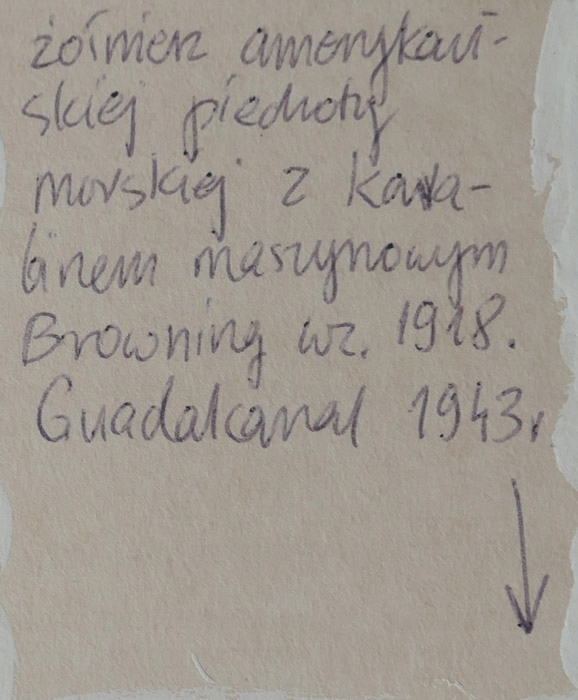 żołnierz amerykań-
skiej piechoty
morskiej z kara-
binem maszynowym
Browning wz. 1918.
Guadalcanal 1943r